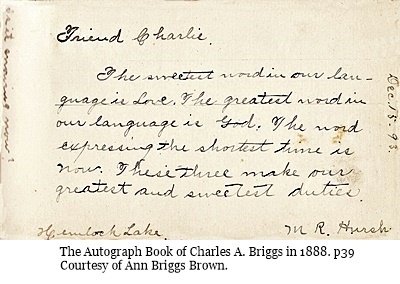 Friend Charlie.
The sweetest word in our lan-
guage is Love. The greatest word in
our language is God. The word
expressing the shortest time is
now. These three make our
greatest and sweetest duties.
Hemlock Lake.
M R. Hursh
Dec. 15 - 93.
The Autograph Book of Charles A. Briggs in 1888. p39
Courtesy of Ann Briggs Brown.